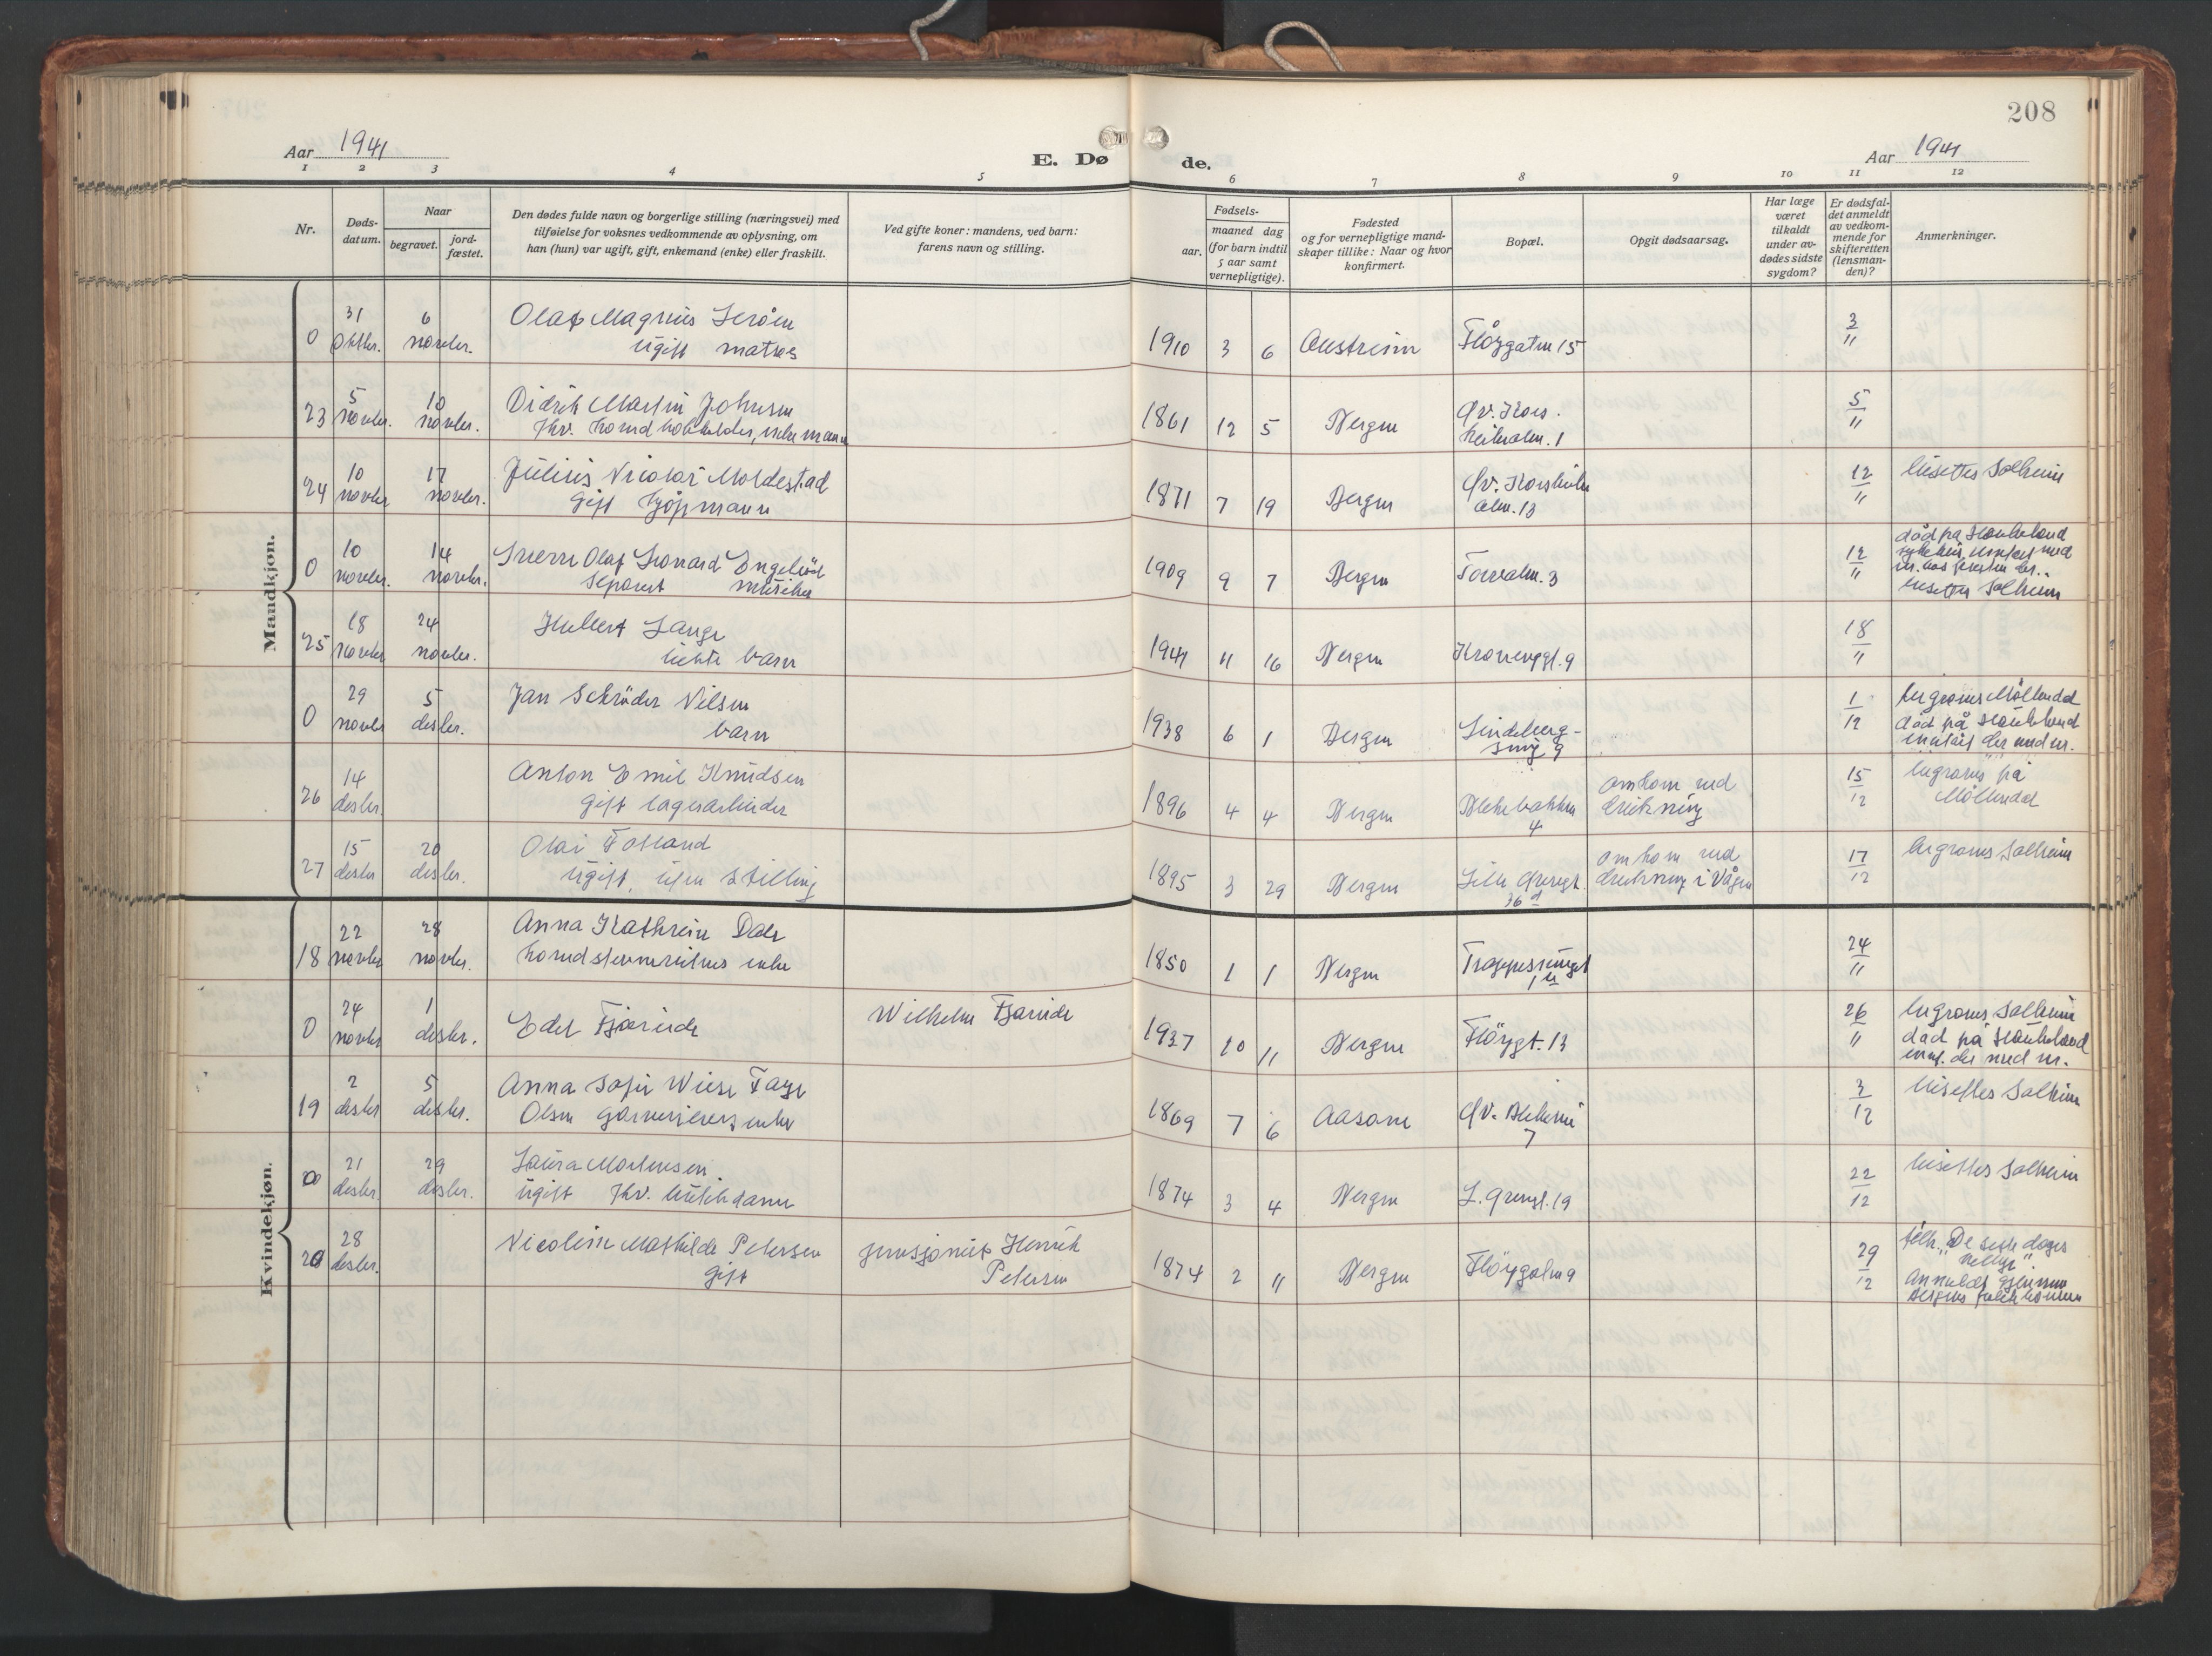 208
Aar 1941
E. Dø
de.
Aar 1941
1 2 3 4 5 6 7 8 9 10 11 12
Nr.
Døds-
datum.
Naar
begravet.
jord-
fæstet.
Den dødes fulde navn og borgerlige stilling (næringsvei) med
tilføielse for voksnes vedkommende av oplysning, om
han (hun) var ugift, gift, enkemand (enke) eller fraskilt.
Ved gifte koner: mandens, ved barn:
farens navn og stilling.
Fødsels-
aar.
maaned dag
(for barn indtil
5 aar samt
vernepligtige).
Fødested
og for vernepligtige mand-
skaper tillike: Naar og hvor
konfirmert.
Bopæl.
Opgit dødsaarsag.
Har læge
været
tilkaldt
under av-
dødes sidste
sygdom?
Er dødsfal-
det anmeldt
av vedkom-
mende for
skifteretten
(lensman-
den)?
Anmerkninger.
Mandkjøn.
31 6 Olaf Magnus 3
0 oktbr. novbr. ugift matros 1910 3 6 Austreim Fløygaten 15 11
5 10 Didrik Martin Johnsen Øv. Kors- 5
23 novbr. novbr. fhv. enkemann 1861 12 5 Bergen kirkealm. 1 11
10 17 Julius Nicolai Moldestad Øv. Korskirke 12 bisettes Solheim
24 novbr. novbr. gift kjøpmann 1871 7 19 Bergen alm. 13 11
10 14 Sverre Olaf Leonard 12 død på Haukeland
0 novbr. novbr. separert musiker 1909 9 7 Bergen Torvalm. 3 11
bisettes Solheim
18 24 Hubert Lange 18
25 novbr. novbr. ekte barn 1941 11 16 Bergen 9 11
29 5 Jan Schrøder Nilsen 1 begraves Møllendal
0 novbr desbr. barn 1938 6 1 Bergen Lindeberg- 12 død på Haukeland
smug 9 inntatt der med nr.
14 Anton Emil Knudsen omkom ved 15 begraves på
26 desbr. gift lagerarbeider 1896 4 4 Bergen Blekebakken drukning 12 Møllendal
4
15 20 Olai Folland omkom ved 17 begraves Solheim
27 desbr desbr. ugift, uten stilling 1895 3 29 Bergen Lille Øvregt. drukning i Vågen 12
36
Kvindekjøn.
22 28 Anna Kathrine Dale 24
18 novbr novbr. enke 1850 1 1 Bergen 11
24 1 Wilhelm Fjæride 26 begraves Solheim
0 novbr desbr. Edel Fjæride 1937 10 11 Bergen Fløygt. 13 11 død på Haukeland
innt. der med nr.
2 5 Anna Sofie Wiese Faye 3 bisettes Solheim
19 desbr desbr. Olsen enke 1869 7 6 Aasane Øv. 12
7
21 29 Laura Mortensen 22 bisettes Solheim
0 desbr. desbr. ugift fhv. butikkdame 1874 3 4 Bergen L. Øvregt. 19 12
28 Nicoline Mathilde Petersen pensjonist Henrik 29 tilh. "De siste dagers
20 desbr. gift Petersen 1874 2 11 Bergen Fløygaten 9 12 hellige".
Anmeldt gjennem
Bergens